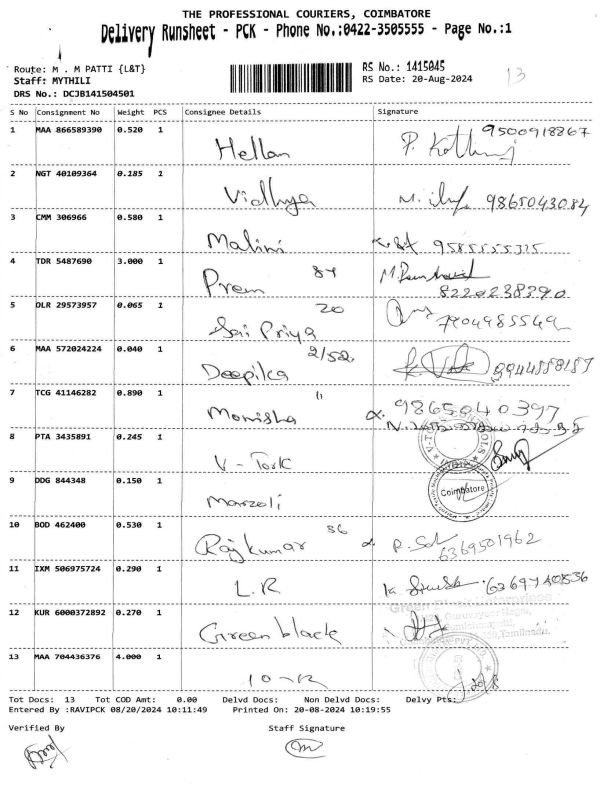 THE PROFESSIONAL COURIERS, COIMBATORE
Delivery Runsheet - PCK - Phone No.:0422-3505555 - Page No.:1
Route: M . M PATTI {L&T} RS No.: 1415045
Staff: MYTHILI RS Date: 20-Aug-2024 13
DRS No.: DCJB141504501
S No Consignment No Weight PCS Consignee Details Signature
1 MAA 866589390 0.520 1 Hellan 9500918867
2 NGT 40109364 0.185 1 Vidhya 9865043084
3 CMM 306966 0.580 1 Malini 9585555325
4 TDR 5487690 3.000 1 Prem 84 8220238390
5 DLR 29573957 0.065 1 Sai Priya 20 7904985549
6 MAA 572024224 0.040 1 Deepika 2/52 8944888187
7 TCG 41146282 0.890 1 Monisha 11 9865040397
8 PTA 3435891 0.245 1 V - Tork
9 DDG 844348 0.150 1 Coimbatore
10 BOD 462400 0.530 1 Rajkumar 36 6369501962
11 IXM 506975724 0.290 1 L.R
12 KUR 6000372892 0.270 1 Green black
13 MAA 704436376 4.000 1 10-R
Tot Docs: 13 Tot COD Amt: 0.00 Delvd Docs: Non Delvd Docs: Delvy Pts:
Entered By :RAVIPCK 08/20/2024 10:11:49 Printed On: 20-08-2024 10:19:55
Verified By Staff Signature